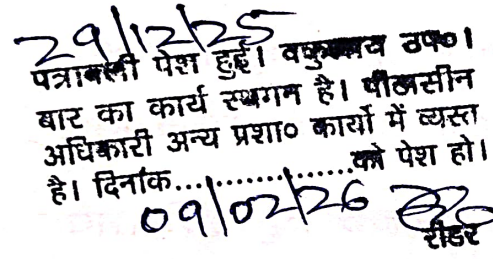 29/12/25
पत्रावली पेश हुई। वकुलाय उप०।
बार का कार्य स्थगन है। पीठासीन
अधिकारी अन्य प्रशा० कार्यो में व्यस्त
है। दिनांक..................को पेश हो।
09/02/26
रीडर